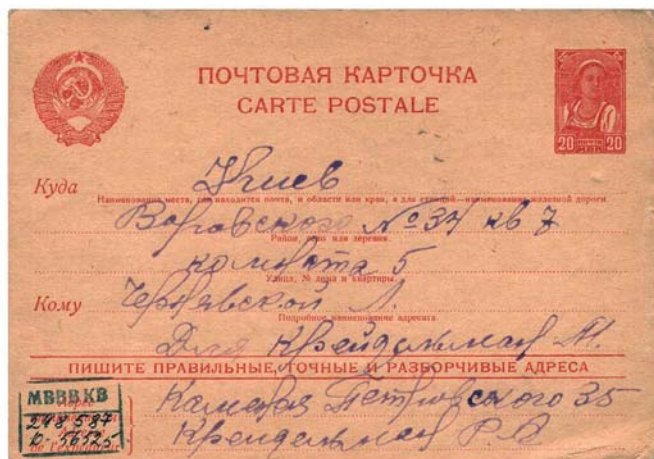 ПОЧТОВАЯ КАРТОЧКА
CARTE POSTALE
20 ПОЧТА 20
Куда Киев
Наименование места, где находится почта, и области или края, а для станций—наименование железной дороги
Воровского №34 кв 7
Район, село или деревня
комната 5
Улица, № дома и квартиры
Кому Чернявской Л.
Подробное наименование адресата
Для Крейдельман М.
ПИШИТЕ ПРАВИЛЬНЫЕ, ТОЧНЫЕ И РАЗБОРЧИВЫЕ АДРЕСА
МВВВКВ
298587
Петровского 35
Крейдельман Р.